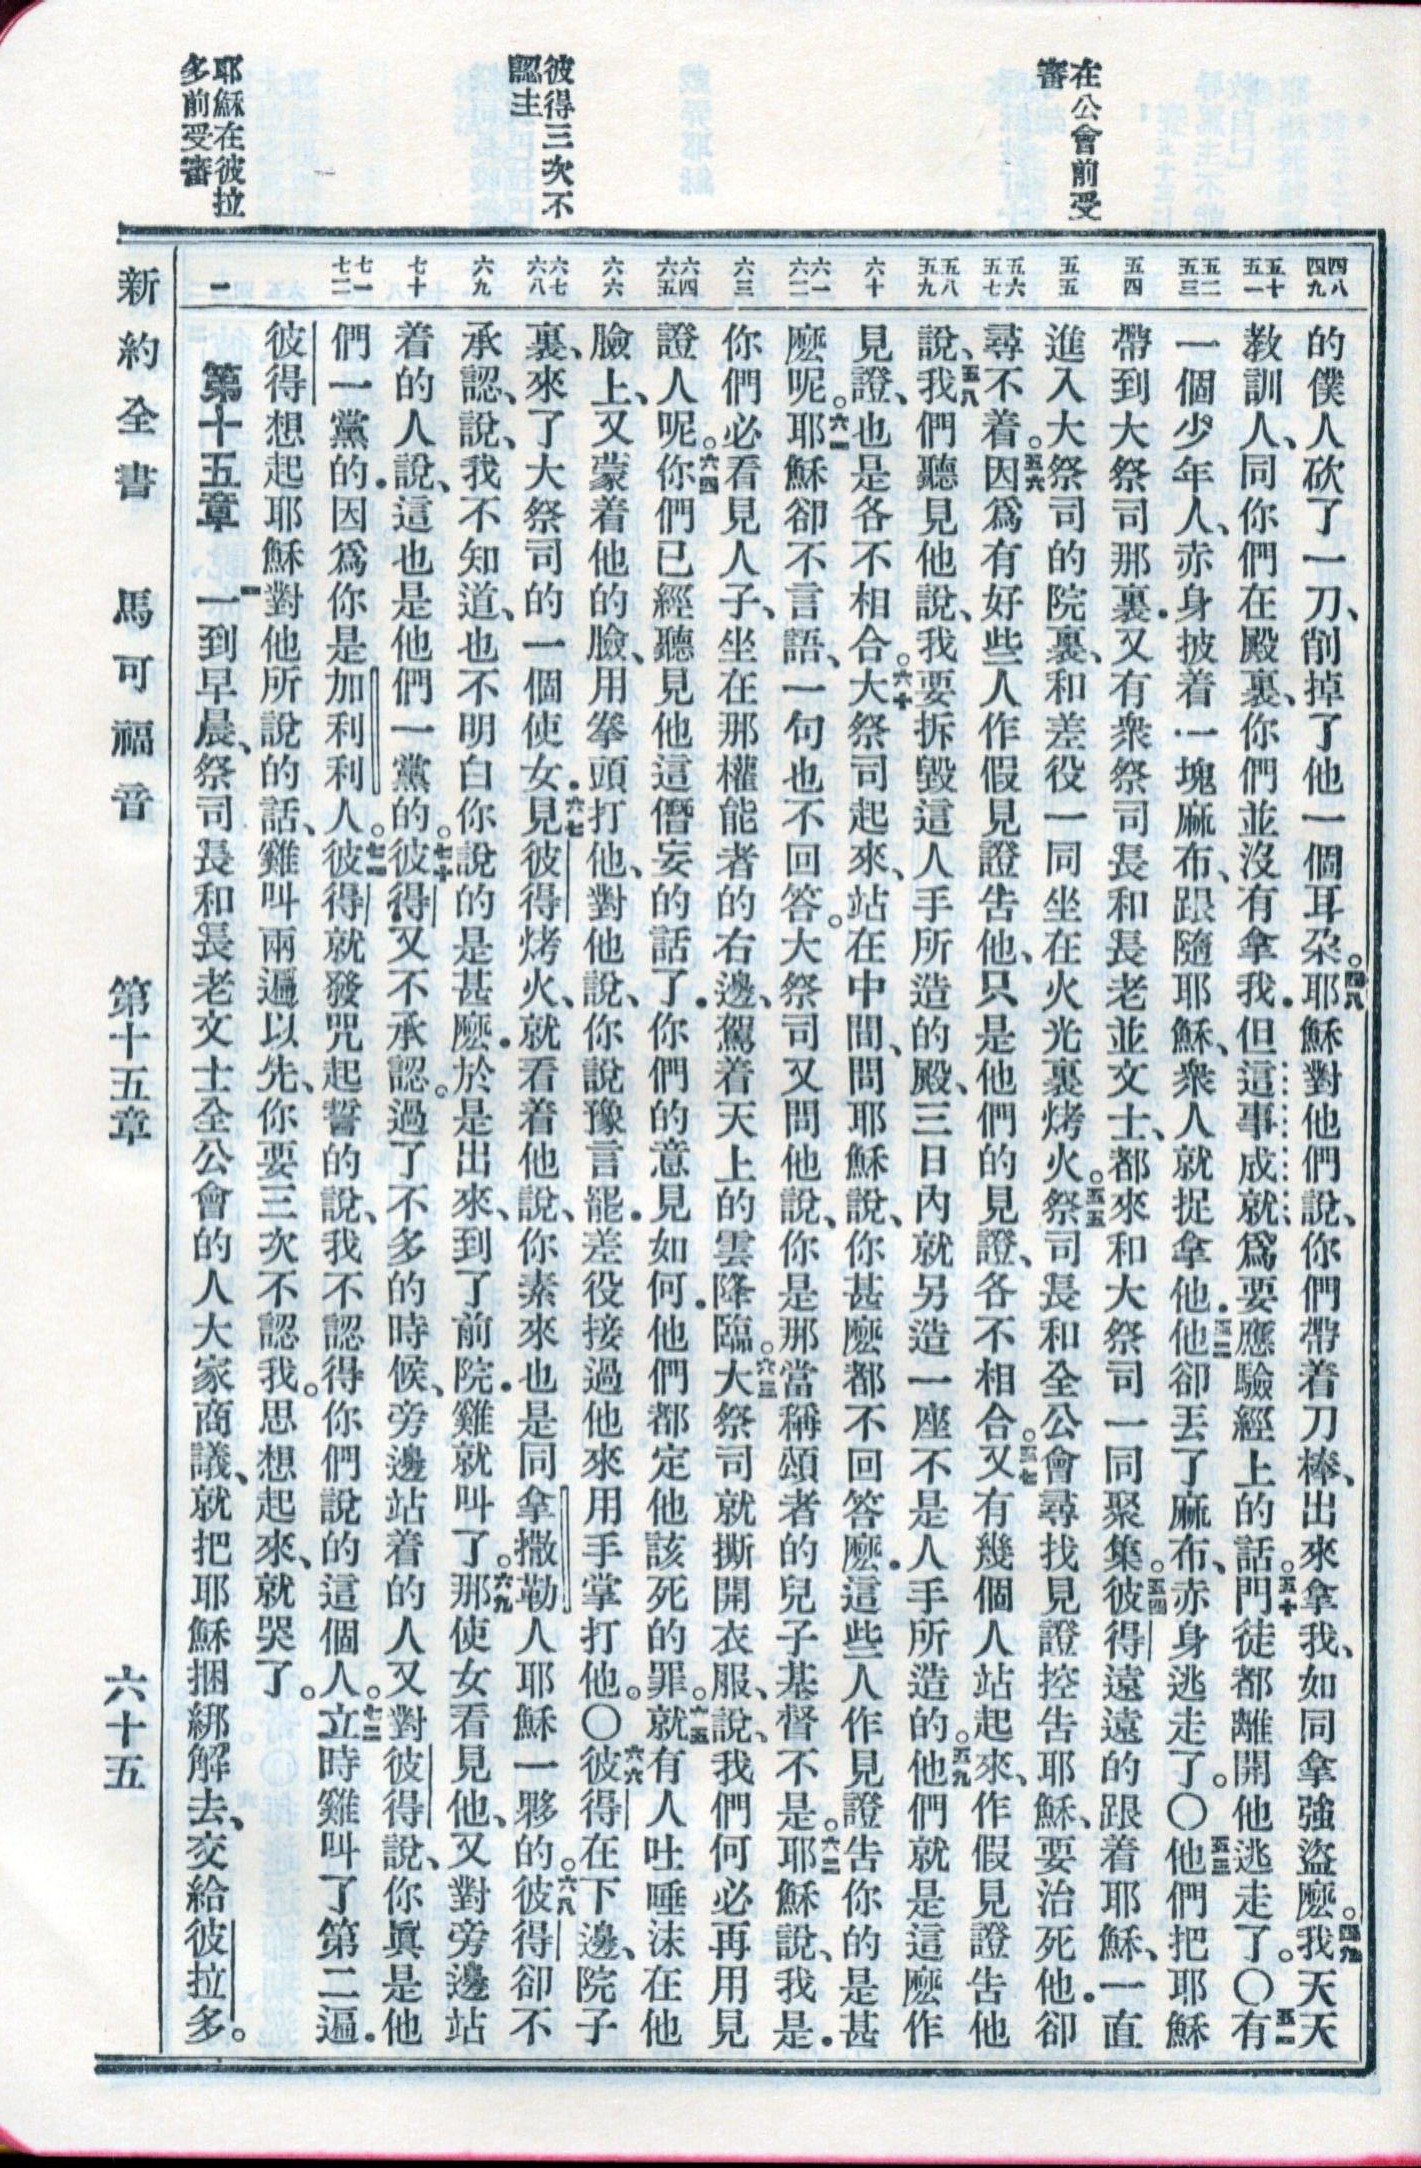 在公會前受
審
彼得三次不
認主
耶穌在彼拉
多前受審
四八
四九
五十
五一
五二
五三
五四
五五
五六
五七
五八
五九
六十
六一
六二
六三
六四
六五
六六
六七
六八
六九
七十
七一
七二
一
的僕人砍了一刀、削掉了他一個耳朶。四八耶穌對他們說、你們帶着刀棒、出來拿我、如同拿強盜麼。四九我天天
教訓人、同你們在殿裏、你們並沒有拿我．但這事成就、爲要應驗經上的話。五十門徒都離開他逃走了。〇五一有
一個少年人、赤身披着一塊麻布、跟隨耶穌、衆人就捉拿他．五二他卻丟了麻布、赤身逃走了。〇五三他們把耶穌
帶到大祭司那裏．又有衆祭司長和長老並文士、都來和大祭司一同聚集。五四彼得遠遠的跟着耶穌、一直
進入大祭司的院裏、和差役一同坐在火光裏烤火。五五祭司長和全公會尋找見證控告耶穌、要治死他．卻
尋不着。五六因爲有好些人作假見證告他、只是他們的見證、各不相合。五七又有幾個人站起來、作假見證告他
說、五八我們聽見他說、我要拆毀這人手所造的殿、三日內就另造一座不是人手所造的。五九他們就是這麼作
見證、也是各不相合。六十大祭司起來、站在中間、問耶穌說、你甚麼都不回答麼．這些人作見證告你的是甚
麼呢。六一耶穌卻不言語、一句也不回答。大祭司又問他說、你是那當稱頌者的兒子基督不是。六二耶穌說、我是．
你們必看見人子、坐在那權能者的右邊、駕着天上的雲降臨。六三大祭司就撕開衣服、說、我們何必再用見
證人呢。六四你們已經聽見他這僭妄的話了．你們的意見如何．他們都定他該死的罪。六五就有人吐唾沫在他
臉上、又蒙着他的臉、用拳頭打他、對他說、你說豫言罷．差役接過他來用手掌打他。〇六六彼得在下邊、院子
裏、來了大祭司的一個使女．六七見彼得烤火、就看着他、說、你素來也是同拿撒勒人耶穌一夥的。六八彼得卻不
承認、說、我不知道、也不明白你說的是甚麼．於是出來、到了前院．雞就叫了。六九那使女看見他、又對旁邊站
着的人說、這也是他們一黨的。七十彼得又不承認。過了不多的時候、旁邊站着的人又對彼得說、你眞是他
們一黨的．因爲你是加利利人。七一彼得就發咒起誓的說、我不認得你們說的這個人。七二立時雞叫了第二遍．
彼得想起耶穌對他所說的話、雞叫兩遍以先、你要三次不認我。思想起來、就哭了。
第十五章 一一到早晨、祭司長和長老文士全公會的人大家商議、就把耶穌捆綁解去、交給彼拉多。
新約全書 馬可福音 第十五章 六十五